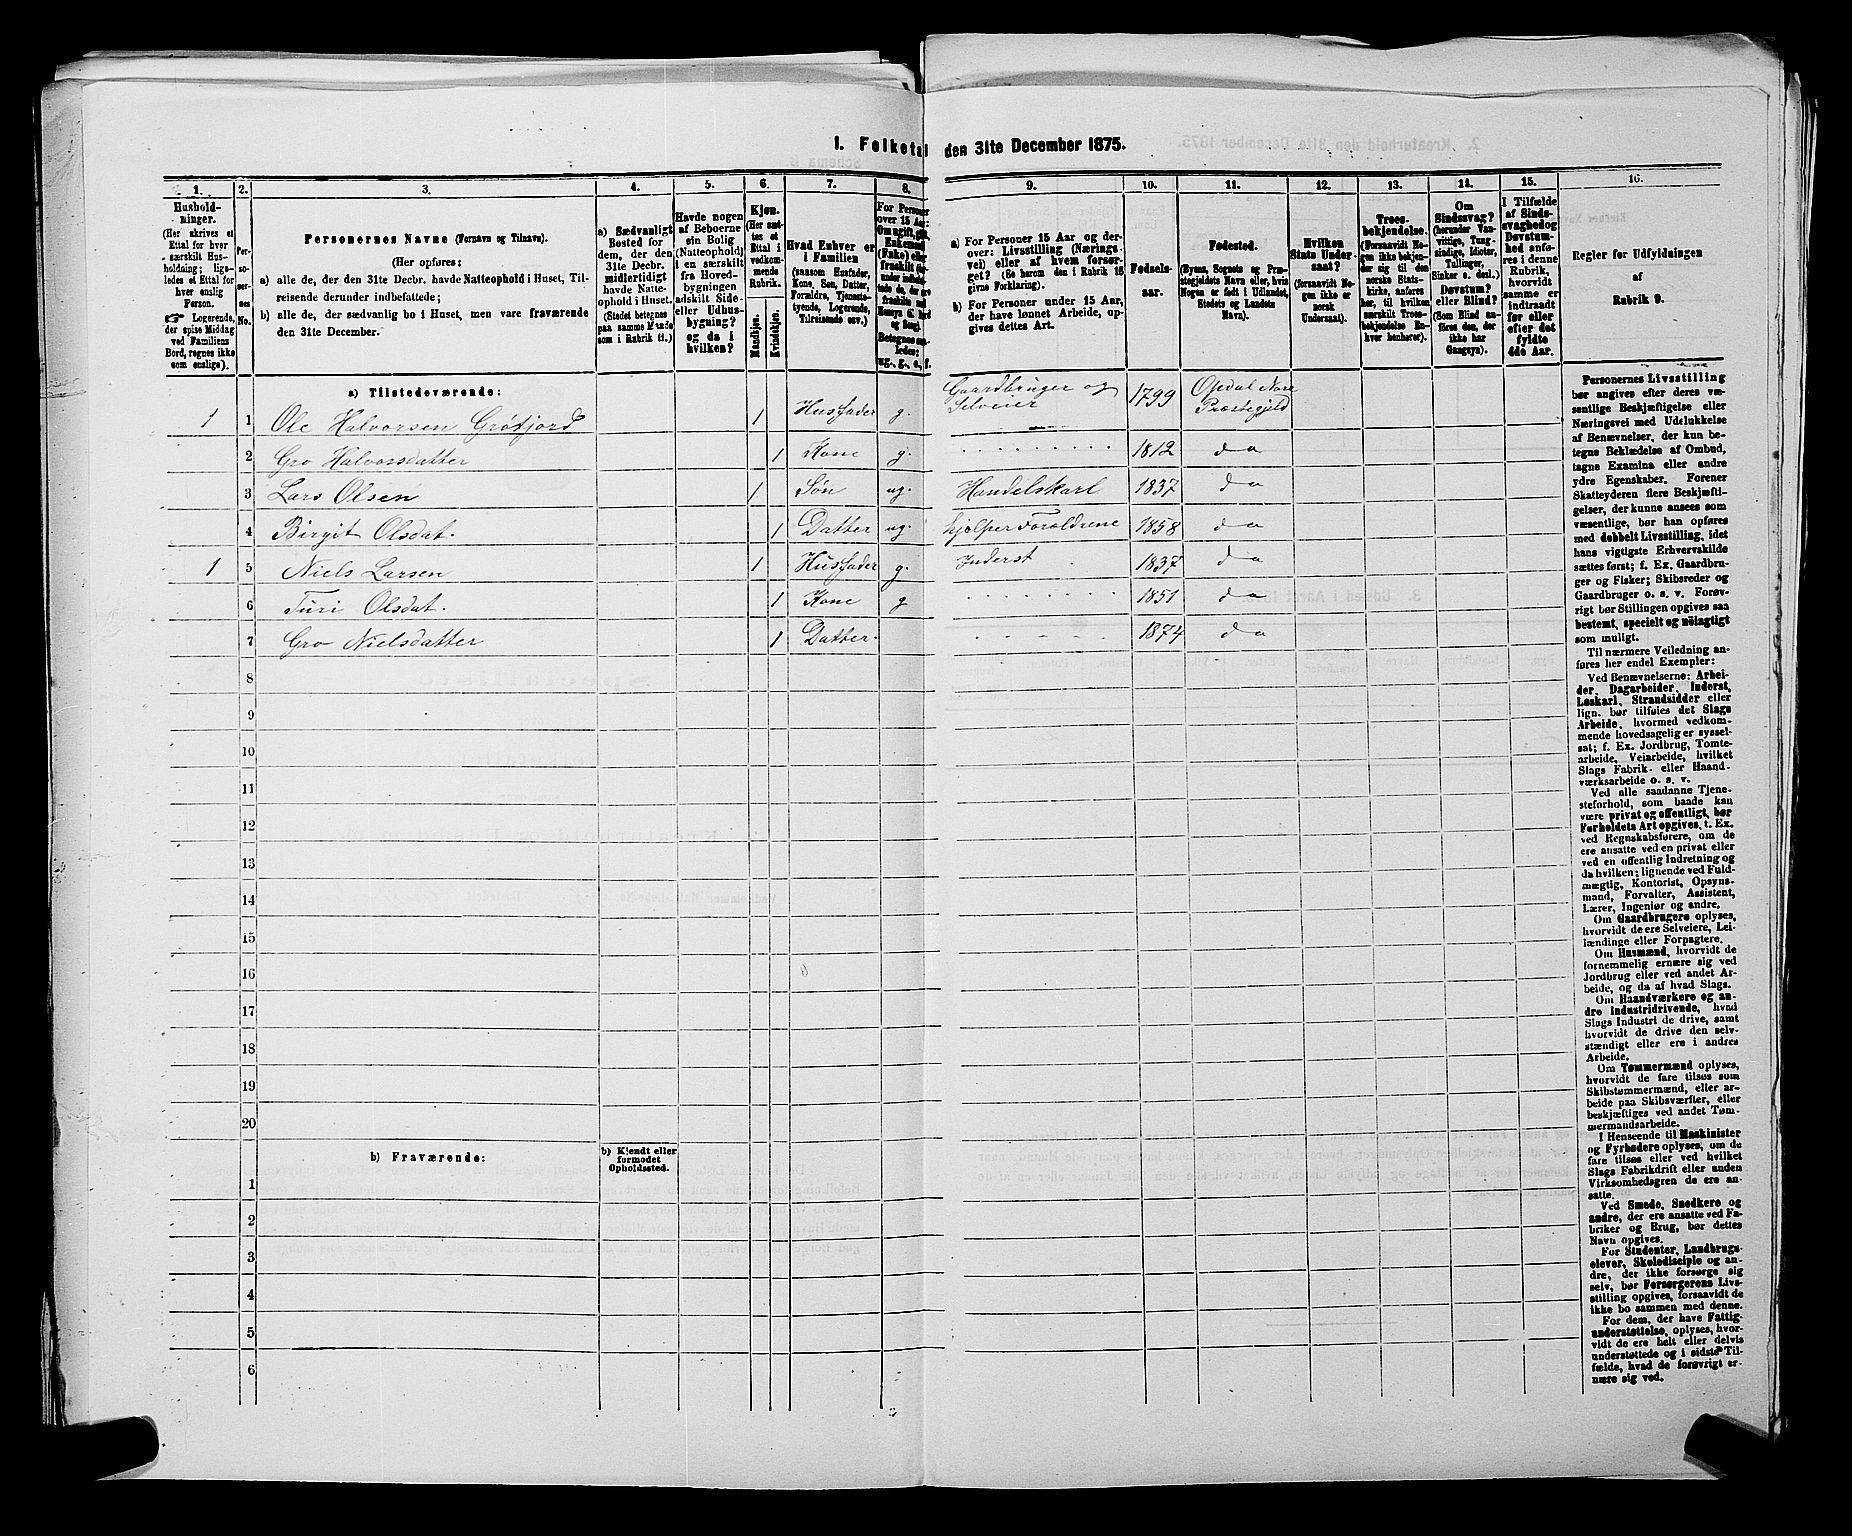 1. Folketal den 31te December 1875.
1. 2. 3. 4. 5. 6. 7. 8. 9. 10. 11. 12. 13. 14. 15. 16.
Hushold-
ninger.
(Her skrives et
Ettal for hver
særskilt Hus-
holdning; lige-
ledes et Ettal for
hver enslig
Person.
Logerende,
der spise Middag
ved Familiens
Bord, regnes ikke
som enslige).
Per-
so-
ner-
nes
No.
Personernes Navne (Fornavn og Tilnavn).
(Her opføres:
a) alle de, der den 31te Decbr. havde Natteophold i Huset, Til-
reisende derunder indbefattede;
b) alle de, der sædvanlig bo i Huset, men vare fraværende
den 31te December.
a) Sædvanligt
Bosted for
dem, der den
31te Decbr.
midlertidigt
havde Natte-
ophold i Huset.
(Stedet betegnes
paa samme Maade
som i Rubrik 11.)
Havde nogen
af Beboerne
sin Bolig
(Natteophold)
i en særskilt
fra Hoved-
bygningen
adskilt Side-
eller Udhus-
bygning?
og da i
hvilken?
Kjøn.
(Her sæt-
tes et
Ettal i
vedkom-
mende
Rubrik.
Mandkjøn.
Kvindekjøn.
Hvad Enhver er
i Familien
(saasom Husfader,
Kone, Søn, Datter,
Forældre, Tjenest-
tyende, Logerende,
Tilreisende osv.)
For Personer
over 15 Aar:
Om ugift, gift,
Enkemand
(Enke) eller
fraskilt
Betegnes saa-
ledes:
ug., g., e., f.
a) For Personer 15 Aar og der-
over: Livsstilling (Nærings-
vei) eller af hvem forsør-
get? (Se herom den i Rubrik 16
givne Forklaring).
b) For Personer under 15 Aar,
der have lønnet Arbeide, op-
gives dettes Art.
Fødsels-
aar.
Fødested.
(Byens, Sognets og Præ-
stegjeldets Navn eller, hvis
Nogen er født i Udlandet,
Stedets og Landets
Navn).
Hvilken
Stats Under-
saat?
(forsaavidt No-
gen ikke er
norsk
Undersaat).
Troes-
bekjendelse.
(Forsaavidt No-
gen ikke bekjen-
der sig til den
norske Stats-
kirke, anføres
her, til hvilken
særskilt Troes-
bekjendelse En-
hver henhører).
Om
Sindssvag?
(herunder Van-
vittige, Tung-
sindige, Idioter,
Tullinger,
Sinker o. desl.)
Døvstum?
eller Blind?
(Som Blind an-
føres den, der
ikke har
Gangsyn).
I Tilfælde
af Sinds-
svaghed og
Døvstum-
hed anfø-
res i denne
Rubrik,
hvorvidt
samme er
indtraadt
før eller
efter det
fyldte
4de Aar.
Regler for Udfyldningen
af
Rubrik 9.
a) Tilstedeværende:
1 1 Ole Halvorsen Grøtjord 1 Husfader g. Gaardbruger og Selveier 1799 Opdal Nore Præstegjeld
2 Gro Halvorsdatter 1 Kone g. 1812 do
3 Lars Olsen 1 Søn ug. Handelskarl 1837 do
4 Birgit Olsdat. 1 Datter ug. hjelper Forældrene 1858 do
1 5 Niels Larsen 1 Husfader g. Inderst 1837 do
6 Turi Olsdat. 1 Kone g 1851 do
7 Gro Nielsdatter 1 Datter 1874 do
8
9
10
11
12
13
14
15
16
17
18
19
20
b) Fraværende:
b) Kjendt eller
formodet
Opholdssted.
1
2
3
4
5
6
Personernes Livsstilling
bør angives efter deres væ-
sentlige Beskjæftigelse eller
Næringsvei med Udelukkelse
af Benævnelser, der kun be-
tegne Beklædelse af Ombud,
tagne Examina eller andre
ydre Egenskaber. Forener
Skatteyderen flere Beskjæfti-
gelser, der kunne ansees som
væsentlige, bør han opføres
med dobbelt Livsstilling, idet
hans vigtigste Erhvervskilde
sættes først; f. Ex. Gaardbru-
ger og Fisker; Skibsreder og
Gaardbruger o. s. v. Forøv-
rigt bør Stillingen opgives saa
bestemt, specielt og nöiagtigt
som muligt.
Til nærmere Veiledning an-
føres her endel Exempler:
Ved Benævnelserne: Arbei-
der, Dagarbeider, Inderst,
Løskarl, Strandsidder eller
lign. bør tilføies det Slags
Arbeide, hvormed vedkom-
mende hovedsagelig er syssel-
sat; f. Ex. Jordbrug, Tomte-
arbeide, Veiarbeide, hvilket
Slags Fabrik- eller Haand-
værksarbeide o. s. v.
Ved alle saadanne Tjene-
steforhold, som baade kan
være privat og offentligt, bør
Forholdets Art opgives, t. Ex.
ved Regnskabsførere, om de
ere ansatte ved en privat eller
ved en offentlig Indretning og
da hvilken; lignende ved Fuld-
mægtig, Kontorist, Opsyns-
mand, Forvalter, Assistent,
Lærer, Ingeniør og andre.
Om Gaardbrugere oplyses,
hvorvidt de ere Selveiere, Lei-
lændinge eller Forpagtere.
Om Husmænd, hvorvidt de
fornemmelig ernære sig ved
Jordbrug eller ved andet Ar-
beide, og da af hvad Slags.
Om Haandværkere og an-
dre industridrivende, hvad
Slags Industri de drive, samt
hvorvidt de drive den selv-
stændigt eller ere i andres
Arbeide.
Om Tømmermænd oplyses,
hvorvidt de fare tilsøs som
Skibstømmermænd, eller ar-
beide paa Skibsværfter, eller
beskjæftiges ved andet Tøm-
mermandsarbeide.
I Henseende til Maskinister
og Fyrbødere oplyses, om de
fare tilsøs eller ved hvilket
Slags Fabrikdrift eller anden
Virksomhedsgren de ere an-
satte.
Ved Smede, Snedkere og
andre, der ere ansatte ved Fa-
briker og Brug, bør dettes
Navn opgives.
For Studenter, Landbrugs-
elever, Skoledisciple og an-
dre, der ikke forsørge sig
selv, bør Forsørgerens Livs-
stilling opgives, forsaavidt de
ikke bo sammen med denne.
For dem, der have Fattig-
understøttelse, oplyses, hvor-
vidt de ere helt eller delvis
understøttede og i sidste Til-
fælde, hvad de forøvrigt er-
nære sig ved.